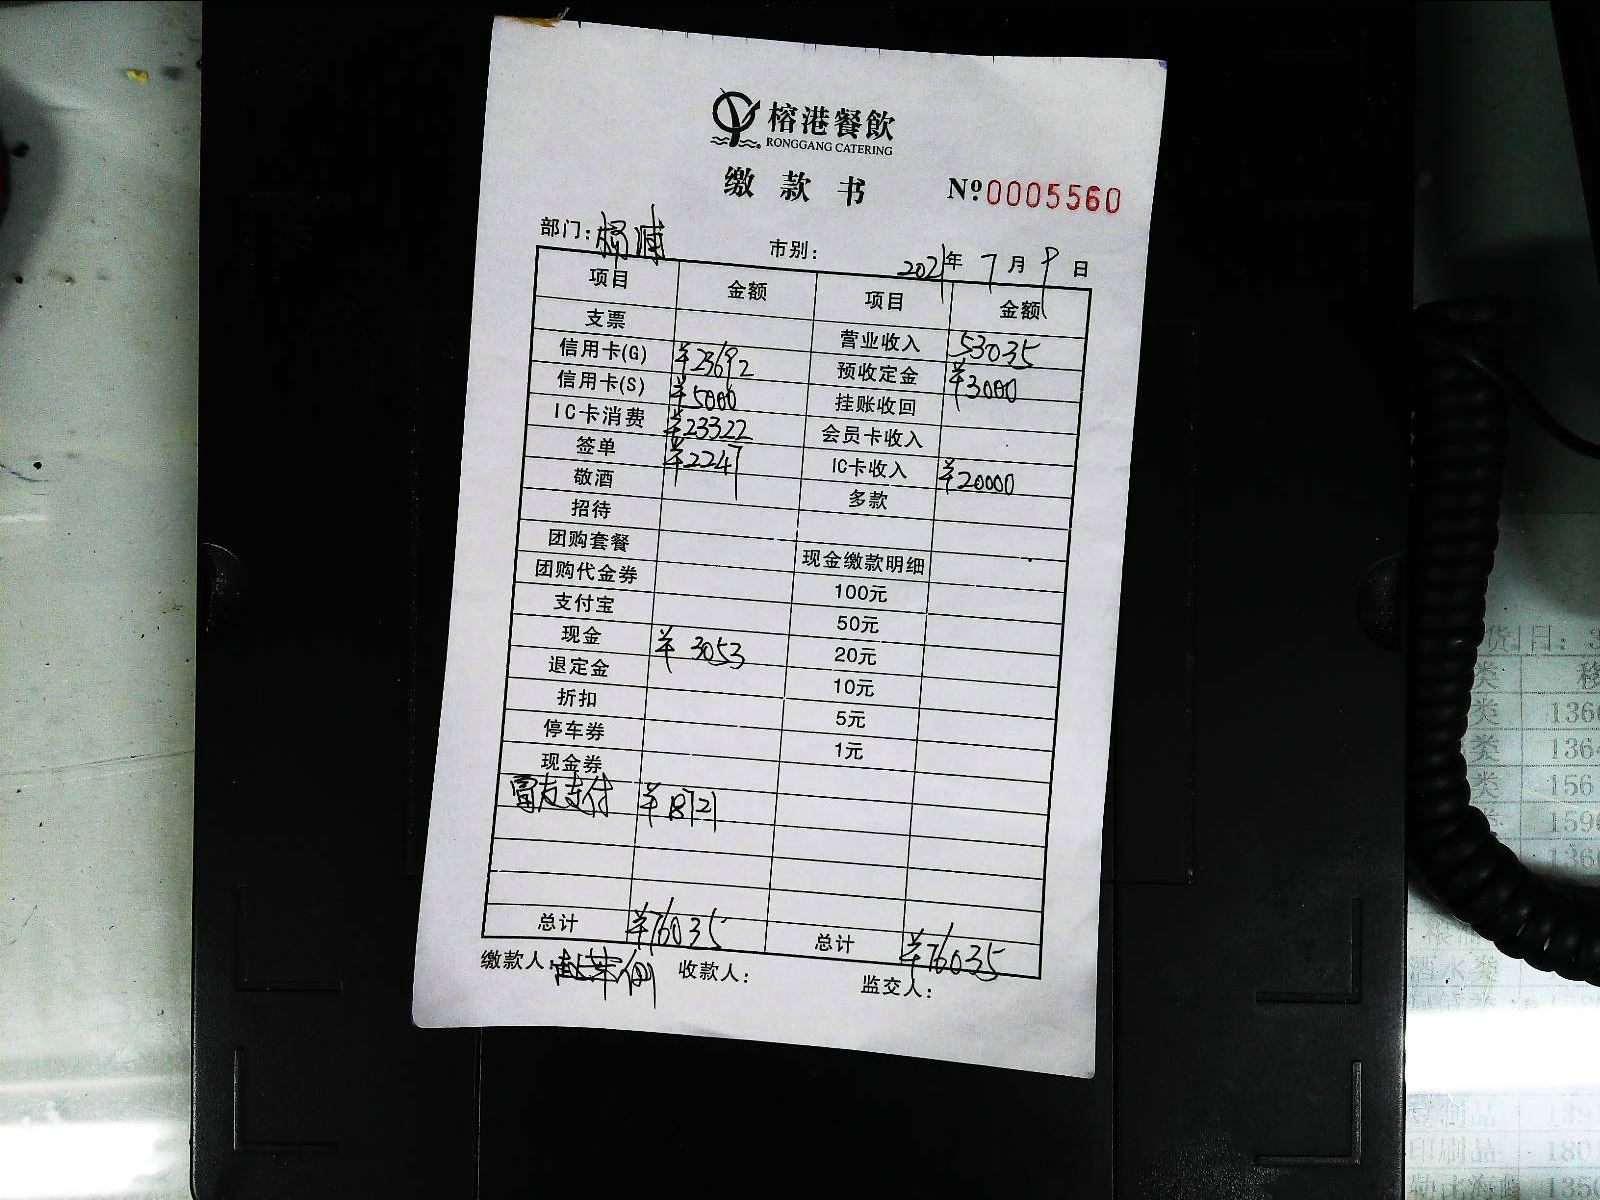 榕港餐飲
RONGGANG CATERING
缴款书 №0005560
部门: 杨浦 市别: 2021年 7月 9日
项目 金额 项目 金额
支票 营业收入 53035
信用卡(G) ¥23692 预收定金 ¥3000
信用卡(S) ¥5000 挂账收回
IC卡消费 ¥23322 会员卡收入
签单 ¥2247 IC卡收入 ¥20000
敬酒 多款
招待
团购套餐 现金缴款明细
团购代金券 100元
支付宝 50元
现金 ¥3053 20元
退定金 10元
折扣 5元
停车券 1元
现金券
富友支付 ¥18721
总计 ¥76035 总计 ¥76035
缴款人: 收款人: 监交人:
类
类
类 156
酒水类
印刷品 180